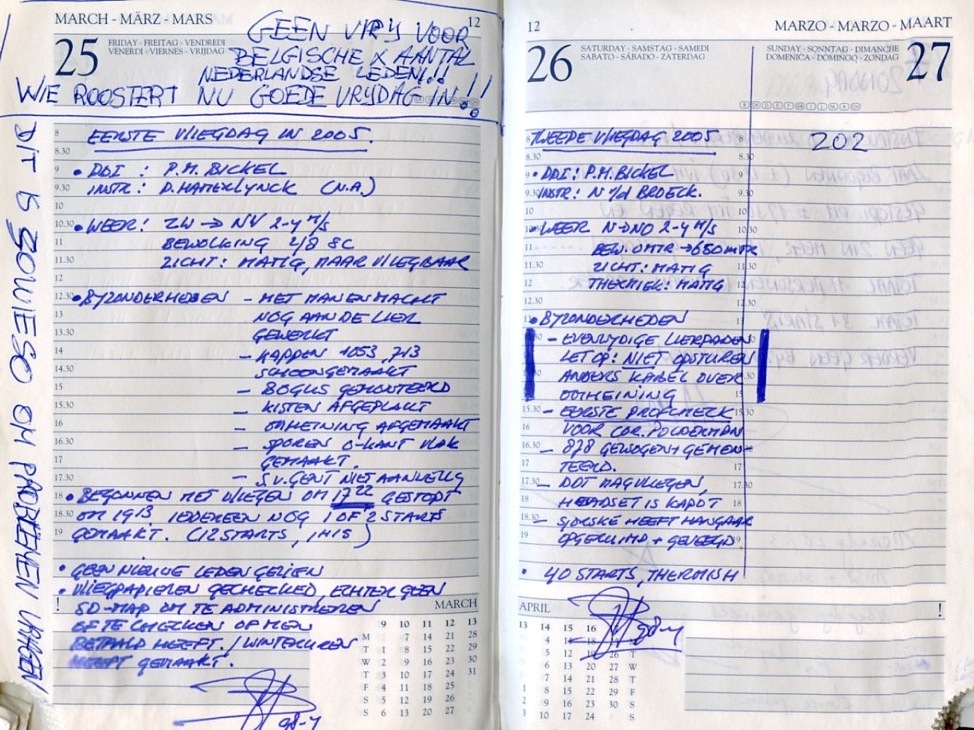 MARCH - MÄRZ - MARS
12
25
FRIDAY - FREITAG - VENDREDI
VENERDI - VIERNES - VRIJDAG
GEEN VRIJ VOOR
BELGISCHE X AANTAL
NEDERLANDSE LEDEN!!!
WIE ROOSTERT NU GOEDE VRIJDAG IN!!
DIT IS SOWIESO OM PROBLEMEN VRAGEN
EERSTE VLIEGDAG IN 2005.
• DDI: P.M. BICKEL
INSTR: D. HAMERLYNCK (N.A)
• WEER: ZW → NW 2-4 M/S
BEWOLKING 2/8 SC
ZICHT: MATIG, MAAR VLIEGBAAR
• BYZONDERHEDEN - MET MANENMACHT
NOG AAN DE LIER
GEWERKT
- KAPPEN 1053, 713
SCHOONGEMAAKT
- BOGUS GEMONTEERD
- KISTEN AFGEPLAKT
- OMHEINING AFGEMAAKT
- SPOREN O-KANT VLAK
GEMAAKT.
- S.V. GENT NIET AANWEZIG
• BEGONNEN MET VLIEGEN OM 17 22 GESTOPT
OM 1913 IEDEREEN NOG 1 OF 2 STARTS
GEMAAKT. (12 STARTS, )
• GEEN NIEUWE LEDEN GEZIEN
• VLIEGPAPIEREN GECHECKED, ECHTER GEEN
SD-MAP OM TE ADMINISTREREN
OF TE CHECKEN OF MEN
BETAALD HEEFT / WINTERUREN
HEEFT GEMAAKT.
MARCH
9 10 11 12 13
M 7 14 21 28
T 1 8 15 22 29
W 2 9 16 23 30
T 3 10 17 24 31
F 4 11 18 25
S 5 12 19 26
S 6 13 20 27
12
MARZO - MARZO - MAART
26
SATURDAY - SAMSTAG - SAMEDI
SABATO - SÁBADO - ZATERDAG
SUNDAY - SONNTAG - DIMANCHE
DOMENICA - DOMINGO - ZONDAG
27
TWEEDE VLIEGDAG 2005
202
• DDI: P.M. BICKEL
INSTR: N v/d BROECK.
• WEER N→NO 2-4 M/S
BEW. OMTR → 650 MTR
ZICHT: MATIG
THERMIEK: MATIG
• BYZONDERHEDEN
- EVENWYDIGE LIERPADEN
LET OP: NIET OPSTUREN
ANDERS KABEL OVER
OMHEINING
- EERSTE PROFCHECK
VOOR COR. POLDERMAN
- 878 GEWOGEN + GEMON-
TEERD.
- DOT MAG VLIEGEN,
HEADSET IS KAPOT
- SJORSKE HEEFT HANGAAR
OPGERUIMD + GEVEEGD
• 40 STARTS, THERMISH
APRIL
13 14 15 16